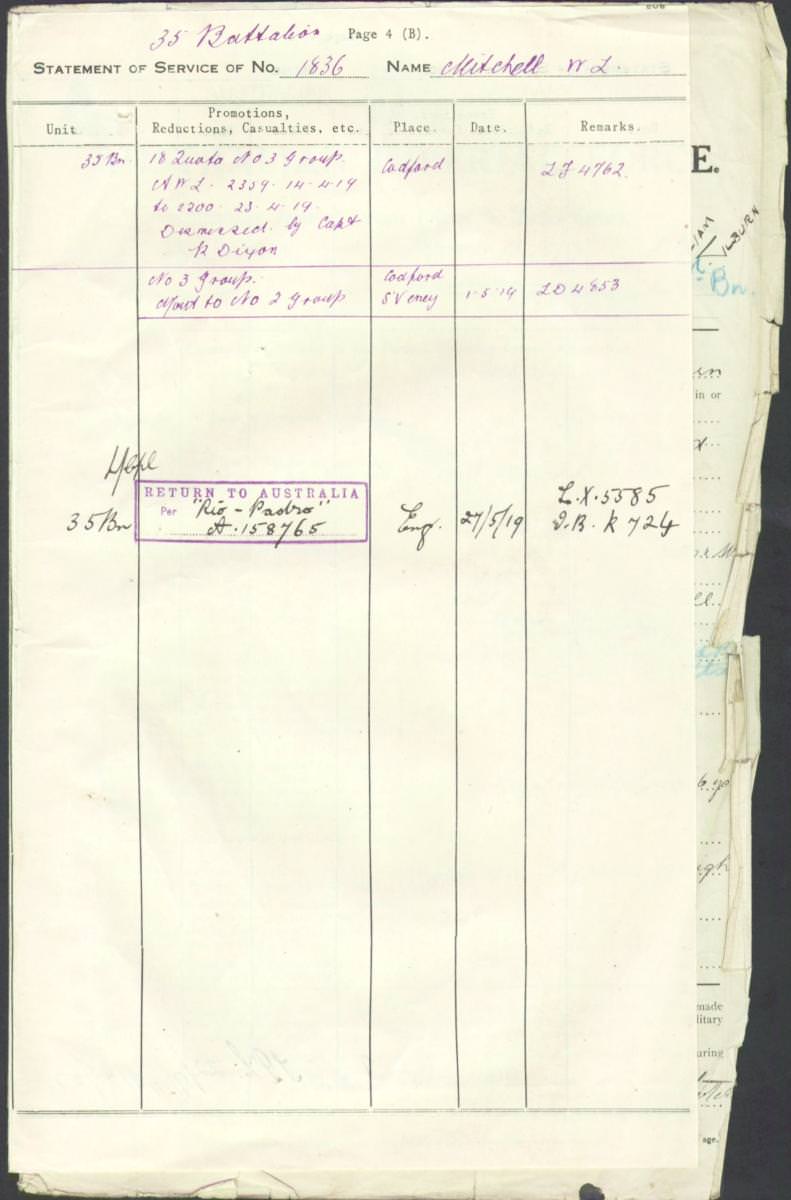 35 Battalion Page 4 (B).
STATEMENT OF SERVICE OF No. 1836 NAME Mitchell W L.
Unit Promotions, Reductions, Casualties, etc. Place. Date. Remarks.
35 Bn. 18 Quota No 3 Group. Codford LF 4762
A W L. 2359. 14-4-19
to 2200. 23-4-19.
Dismissed. by Capt
R Dixon
No 3 Group. Codford
to No 2 Group S'Veney 1-5-19 LD 4853
RETURN TO AUSTRALIA L.X.5585
35 Bn Per "Rio - Padro" Eng. 27/5/19 D.R. K 724
A.158765
E.
Bn.
in or
made
litary
uring
age.